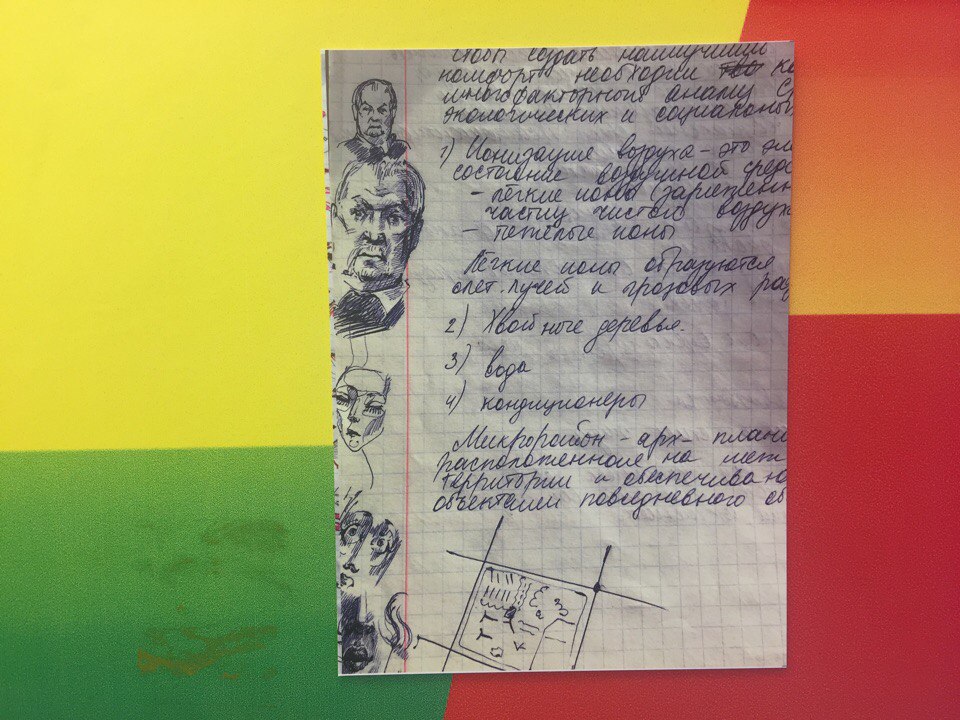 Чтобы создать наилучший
комфорт необходим ко
многофакторный анализ ср
экологических и социальны
1) Ионизация воздуха - это эл
состояние воздушной сред
- лёгкие ионы (заряженн
частиц чистого воздух
- тяжёлые ионы
Лёгкие ионы образуются
лучей и грозовых раз
2) Хвойные деревья.
3) вода
4) кондиционеры
Микрорайон - арх- плани
расположенное на меж
территории и обеспечиваю
объектами повседневного об